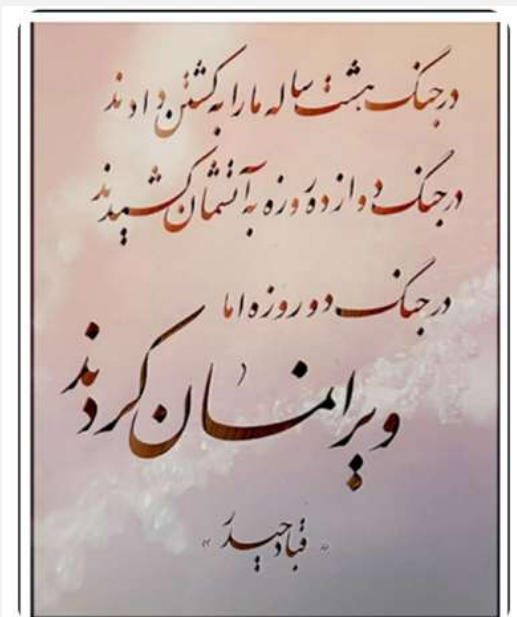 در جنگ هشت ساله ما را به کشتن دادند
در جنگ دوازده روزه به آتشمان کشیدند
در جنگ دو روزه اما
ویرانمان کردند
« قباد حیدر »